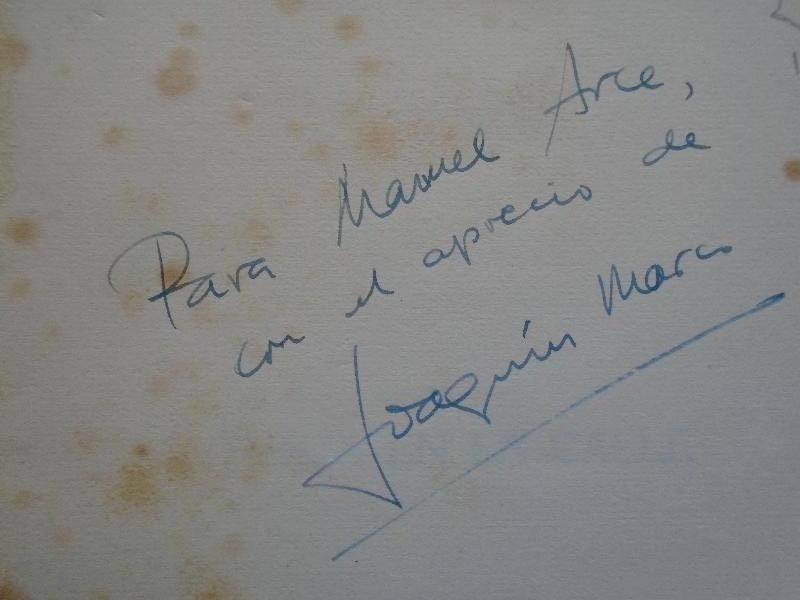 Para Manuel Arce,
con el aprecio de
Joaquín Marco